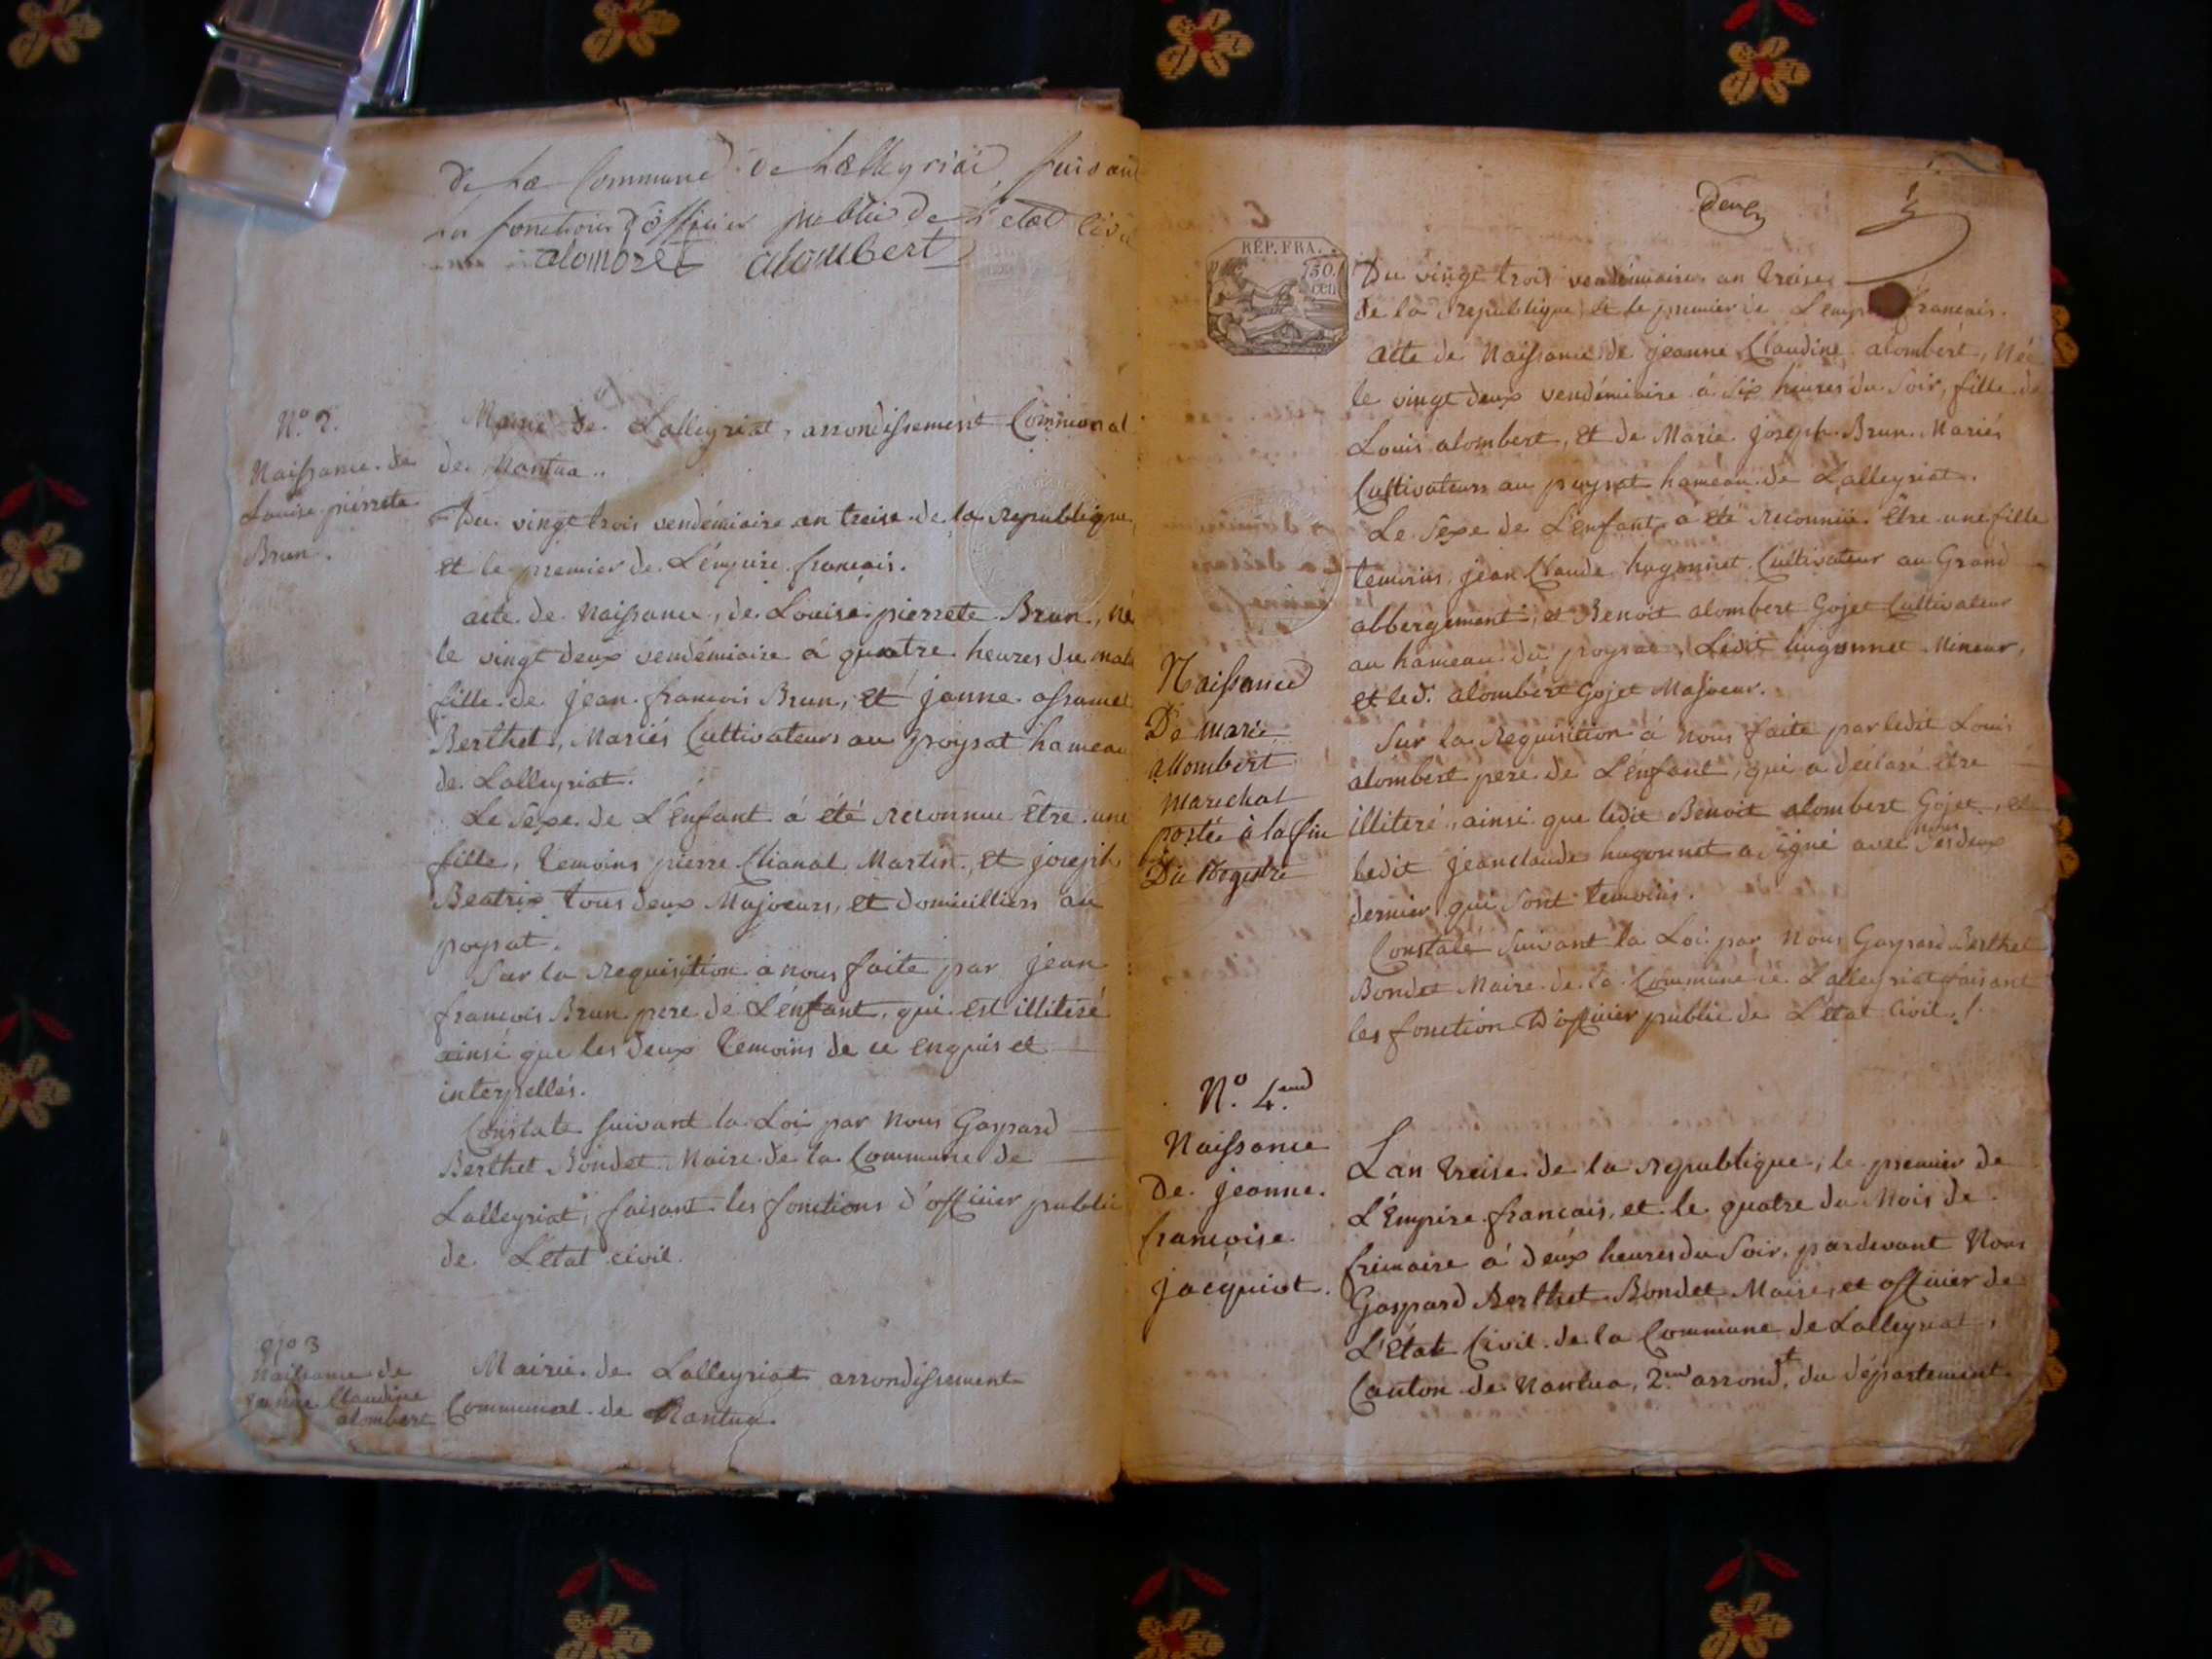 de La Commune de Lalleyriat, faisant
les fonctions d'officier public de l'etat civil
alombret alombert
N.o 2.
Naissance de
Louise pierrete
Brun.
Mairie de Lalleyriat, arrondissement Communal
de Nantua.
Du vingt trois vendémiaire an treise de la republique,
et le premier de L'émpire francais.
acte de Naissance, de Louise pierrete Brun, né
le vingt deux vendémiaire á quatre heures du mat
fille de jean francois Brun, et janne
Berthet, Mariés Cultivateurs au poysat hameau
de Lalleyriat.
Le sexe de L'Enfant á été reconnue Etre une
fille, temoins pierre Martin, et joseph
Beatrix tous deux Majoeurs, et domicilliers au
poysat.
Sur la requisition a nous faite par jean
francois Brun pere de L'énfant, qui est illiteré
ainsi que les deux temoins de ce enquis et
interpellés.
Constaté suivant la Loi par Nous Gaspard
Berthet Bondet Maire de la Commune de
Lalleyriat, faisant les fonctions d'officier public
de L'etat civil.
N.o 3
Naissance de
Claudine
alombert
Mairie de Lalleyriat arrondissement
Communal de Nantua.
Deux
RÉP. FRA.
50.
cen
Du vingt trois vendémiaire an treise
de la republique et le premier de L'emp francais.
acte de Naissance de jeanne Claudine alombert, Née
le vingt deux vendémiaire á six heures du soir, fille de
Louis alombert, et de Marie joseph Brun Mariés
Cultivateurs au poysat haméau de Lalleyriat.
Le sexe de L'enfant a été reconnue Etre une fille
temoins jean Claude hugonnet Cultivateur au Grand
abbergement, et Benoit alombert Gojet Cultivateur
au hameau du poysat, Ledit hugonnet Mineur,
et led. alombert Gojet Majoeur.
Sur la Requisition á nous faite par ledit Louis
alombert peré de L'énfant, qui a déclaré être
illiteré, ainsi que ledit Benoit alombert Gojet, et
ledit jeanclaude hugonnet a signé avec nous ses deux
dernier qui sont temoins.
Constaté suivant la Loi par Nous Gaspard Berthet
Bondet Maire de la Commune de Lalleyriat faisant
les fonction D'officier public de L'état Civil.
Naissance
De marie
allombert
marechal
portée à la fin
Du Registre
N.o 4.eme
Naissance
De jeanne
francoise
jacquiot.
L'an treise de la republique, le premier de
L'Empire francais, et le quatre du Mois de
frimaire á deúx heures du soir, pardevant Nous
Gaspard Berthet Bondet Maire, et officier de
L'état Civil de la Commune de Lalleyriat,
Canton de Nantua, 2.me arrond.t du département